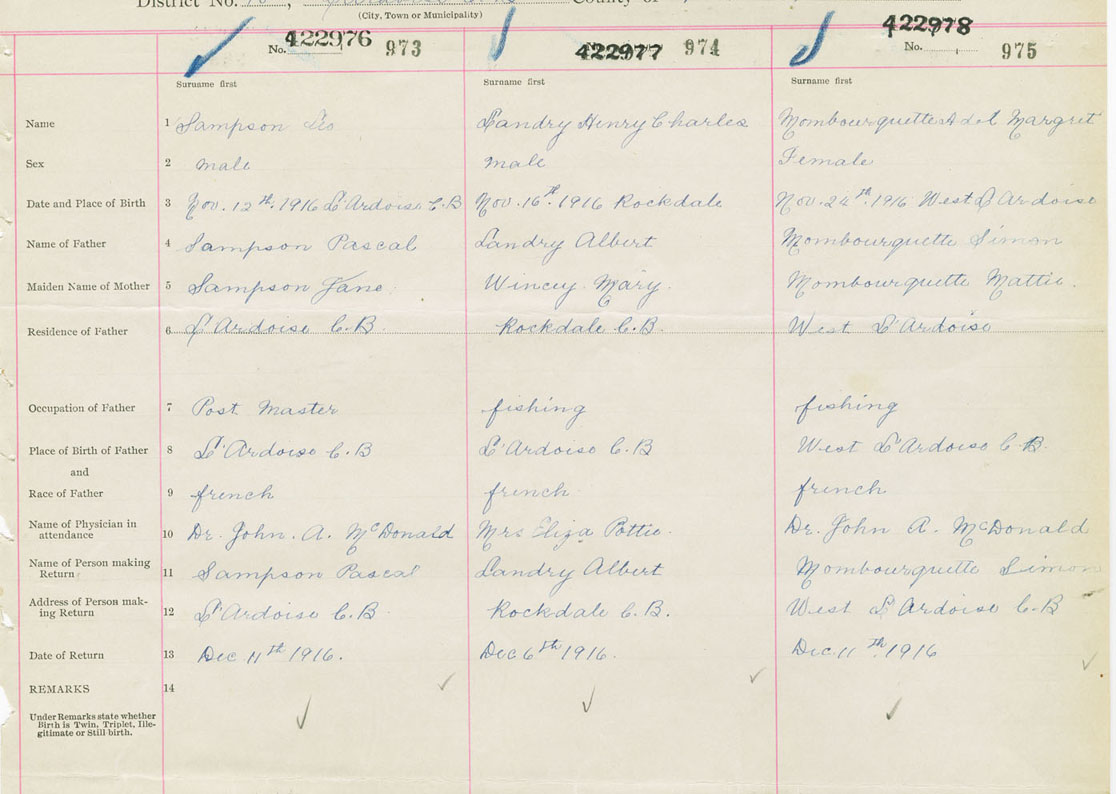 District No. County of
(City, Town or Municipality)
No. 422976 973 422977 974 No. 422978 975
Surname first Surname first Surname first
Name 1 Sampson Leo Landry Henry Charles Mombourquette Adel Margret
Sex 2 male male Female
Date and Place of Birth 3 Nov. 12th. 1916 L'Ardoise C.B Nov. 16th. 1916 Rockdale Nov. 24th. 1916 West L'Ardoise
Name of Father 4 Sampson Pascal Landry Albert Mombourquette Simon
Maiden Name of Mother 5 Sampson Jane. Wincey. Mary. Mombourquette Mattie.
Residence of Father 6 L'Ardoise C.B. Rockdale C.B. West L'Ardoise
Occupation of Father 7 Post Master fishing fishing
Place of Birth of Father 8 L'Ardoise C.B L'Ardoise C.B West L'Ardoise C.B.
and
Race of Father 9 french french french
Name of Physician in
attendance 10 Dr. John. A. McDonald Mrs Eliza Pottie. Dr. John A. McDonald
Name of Person making
Return 11 Sampson Pascal Landry Albert Mombourquette Simon
Address of Person mak-
ing Return 12 L'Ardoise C.B. Rockdale C.B. West L'Ardoise C.B
Date of Return 13 Dec 11th 1916. Dec 6th 1916. Dec. 11th. 1916
REMARKS 14
Under Remarks state whether
Birth is Twin, Triplet, Ille-
gitimate or Still-birth.